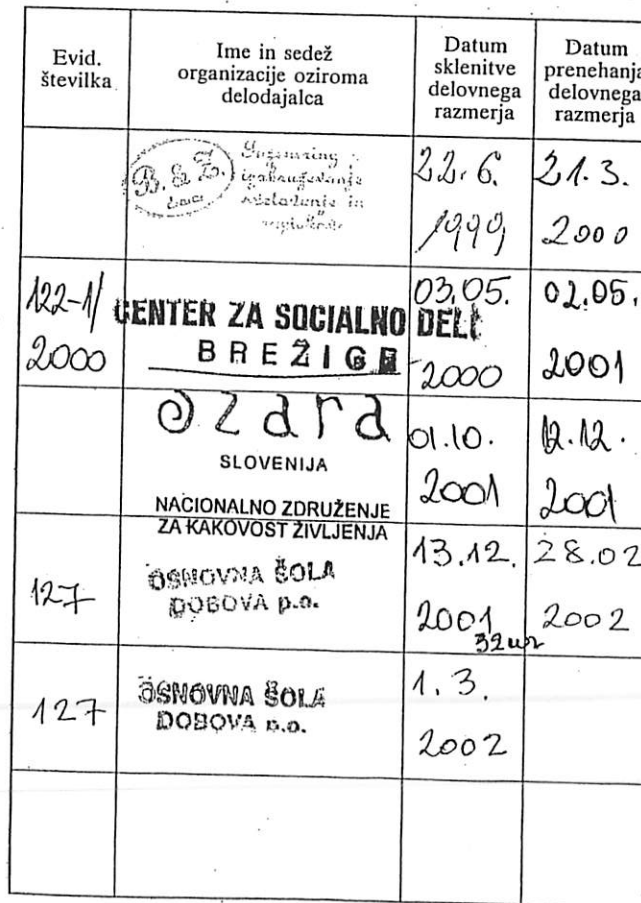 Evid.
številka
Ime in sedež
organizacije oziroma
delodajalca
Datum
sklenitve
delovnega
razmerja
Datum
prenehanja
delovnega
razmerja
B. & Z.
22. 6.
1999
31. 3.
2000
122-1/
2000
CENTER ZA SOCIALNO DEL
BREŽICE
03.05.
2000
02.05.
2001
Ozara
SLOVENIJA
NACIONALNO ZDRUŽENJE
ZA KAKOVOST ŽIVLJENJA
01.10.
2001
12.12.
2001
127
OSNOVNA ŠOLA
DOBOVA p.o.
13.12.
2001
32 ur
28.02
2002
127
OSNOVNA ŠOLA
DOBOVA p.o.
1. 3.
2002